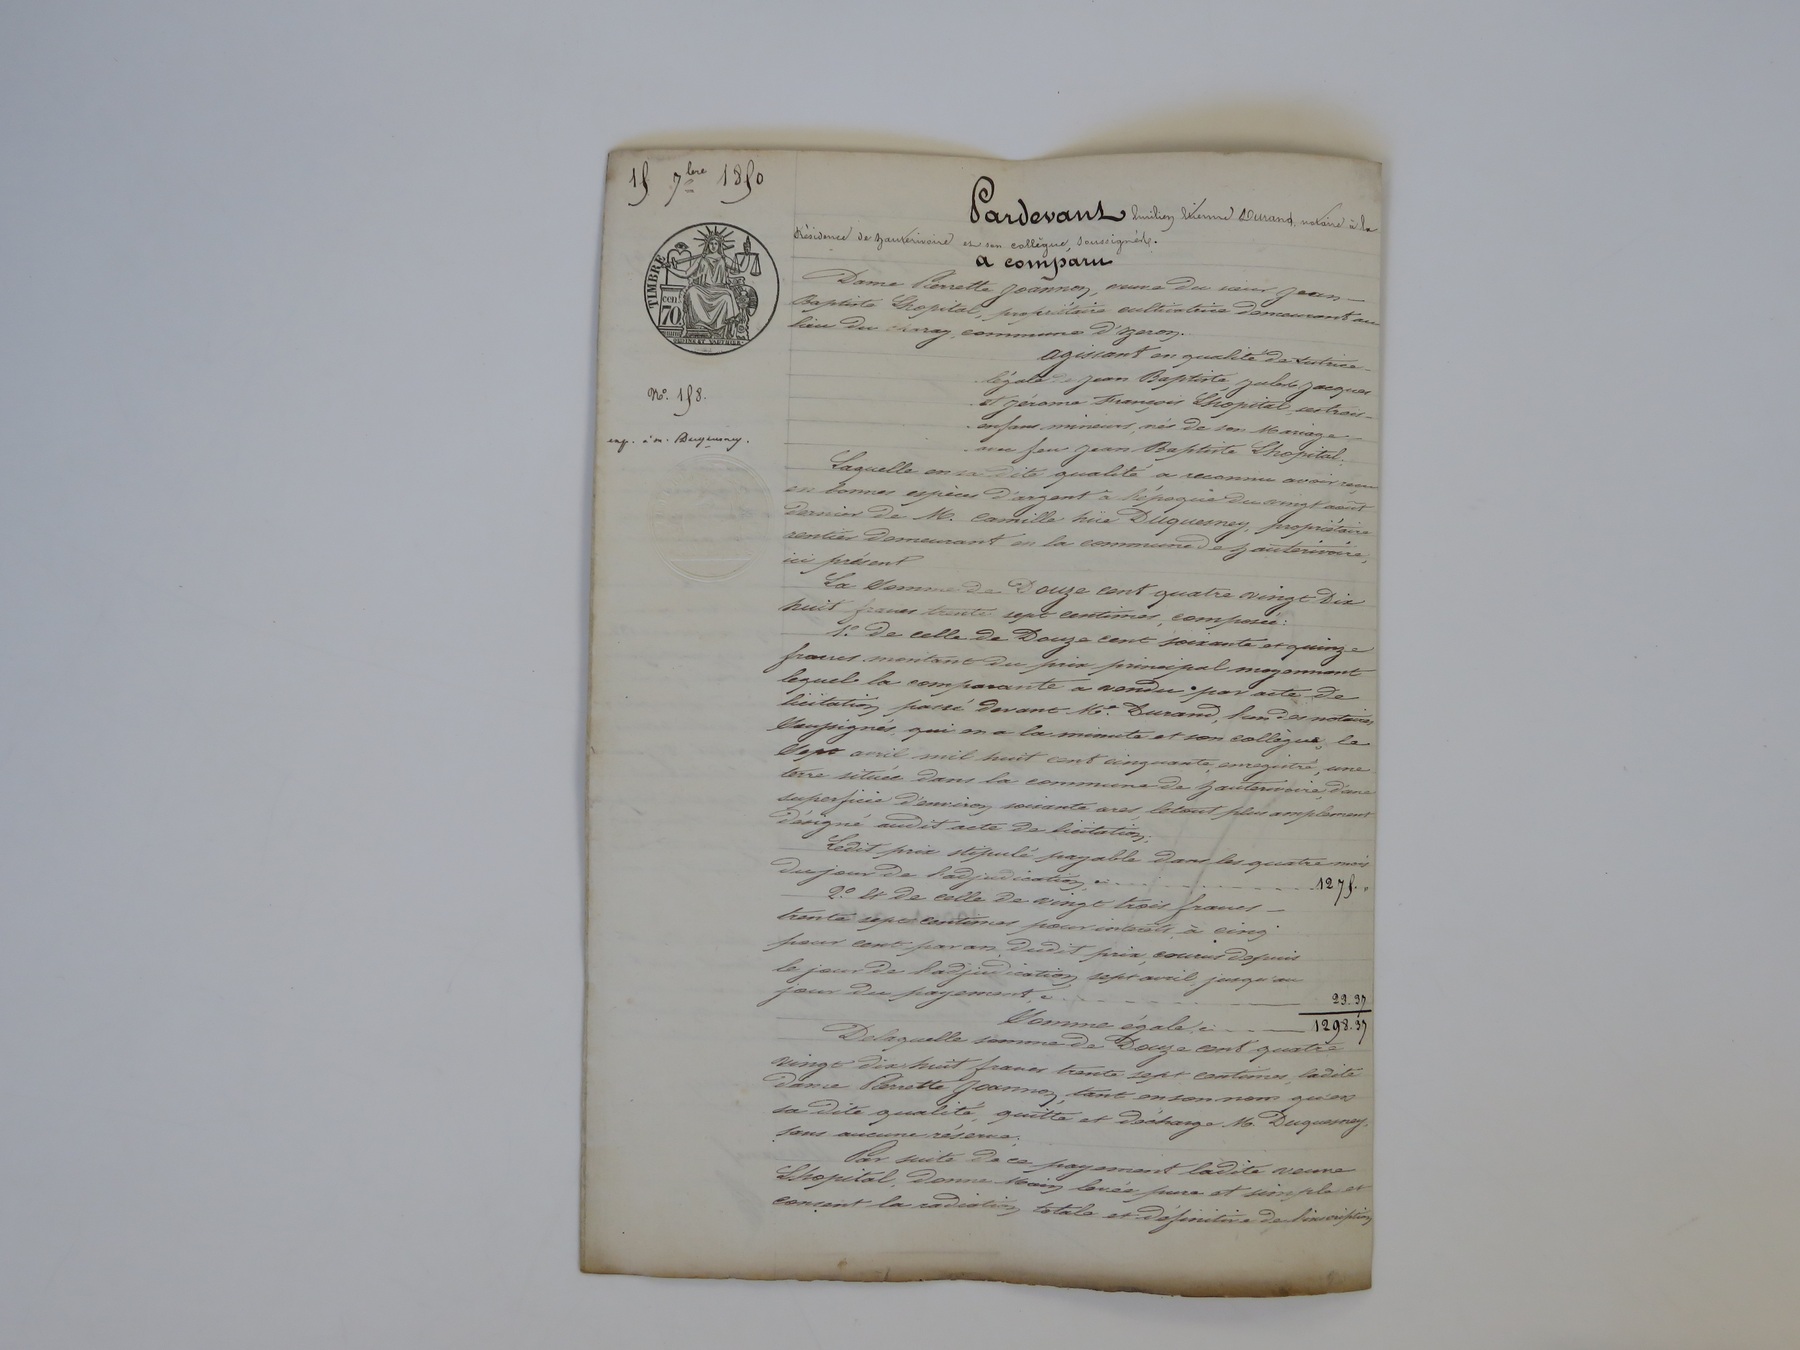 15 7bre 1850
TIMBRE
cen. 70
No. 158.
exp. à m. Duquesney.
Pardevant Emilien Etienne Durand, notaire à la
Résidence de hauterivoire et son collègue, soussignés.
a comparu
Dame Pierrette Joannon, veuve du sieur Jean-
Baptiste Lhopital, propriétaire cultivatrice demeurant au
lieu du charay, commune d'yzeron.
agissant en qualité de tutrice
légale de Jean Baptiste, Jacques
et Jérome François Lhopital, ses trois
enfans mineurs, nés de son Mariage
avec feu Jean Baptiste Lhopital.
Laquelle en sa dite qualité a reconnu avoir reçu
en bonnes espèces d'argent à l'époque du vingt août
dernier de M. Camille hüe Duquesney, propriétaire
rentier demeurant en la commune de hauterivoire,
ici présent
La Somme de Douze cent quatre vingt Dix
huit francs trente sept centimes, composée:
1o. De celle de Douze cent soixante et quinze
francs montant du prix principal moyennant
lequel la comparante a vendu par acte de
licitation passé devant Me. Durand, l'un des notaires
Soussignés qui en a la minute et son collègue, le
Sept avril mil huit cent cinquante, enregistré, une
terre située dans la commune de hauterivoire, d'une
superficie d'environ soixante ares, le tout plus amplement
désigné audit acte de licitation.
Ledit prix stipulé payable dans les quatre mois
du jour de l'adjudication, ci 1275. "
2o. Et de celle de vingt trois francs
trente sept centimes pour intérêts à cinq
pour cent par an dudit prix, courus depuis
le jour de l'adjudication, sept avril jusqu'au
jour du payement, ci 23.37
Somme égale, ci 1298.37
De laquelle somme de Douze cent quatre
vingt dix huit francs trente sept centimes, ladite
dame Pierrette Joannon, tant en son nom qu'en
sa dite qualité, quitte et décharge M. Duquesney.
sans aucune réserve.
Par suite de ce payement ladite veuve
Lhopital, donne Main levée pure et simple et
consent la radiation totale et définitive de l'inscription